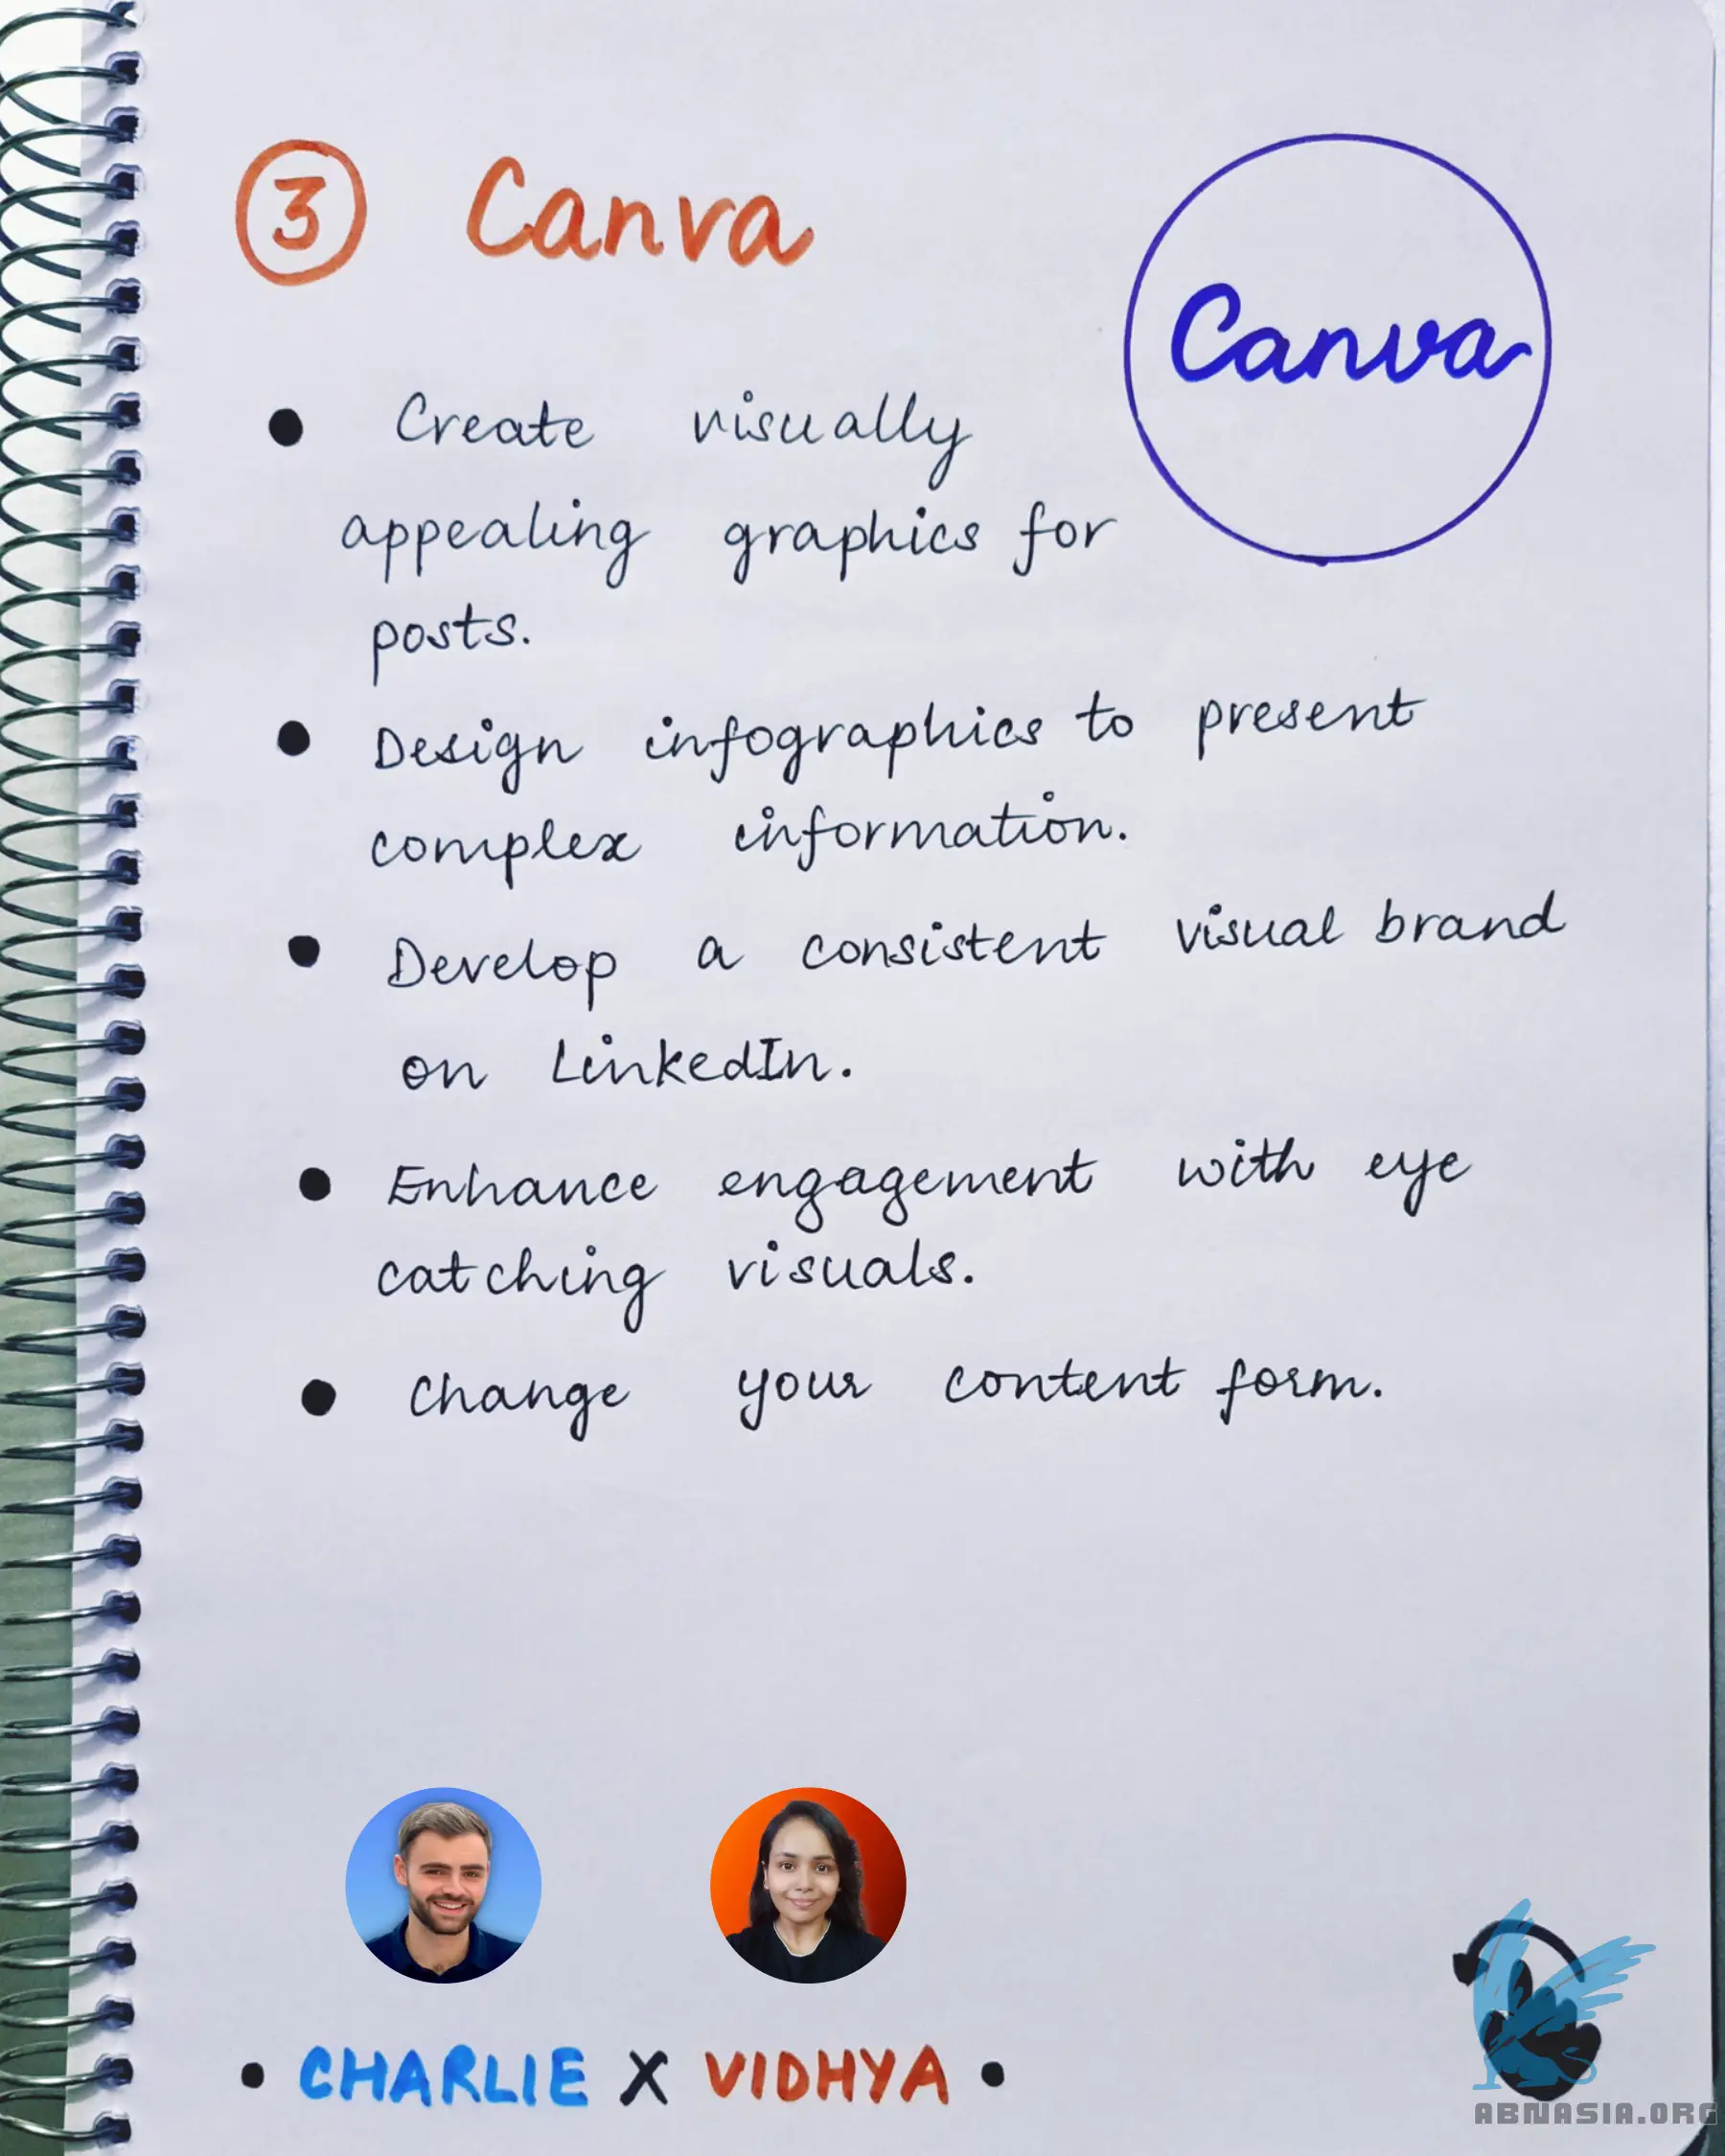 3 Canva
Canva
• Create visually
appealing graphics for
posts.
• Design infographics to present
complex information.
• Develop a consistent visual brand
on LinkedIn.
• Enhance engagement with eye
catching visuals.
• Change your content form.
• CHARLIE X VIDHYA •
ABNASIA.ORG